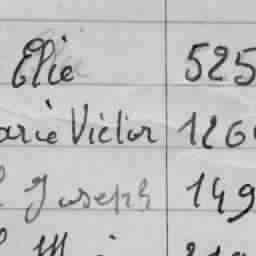 Elie 525
arie Victor 126
Joseph 149